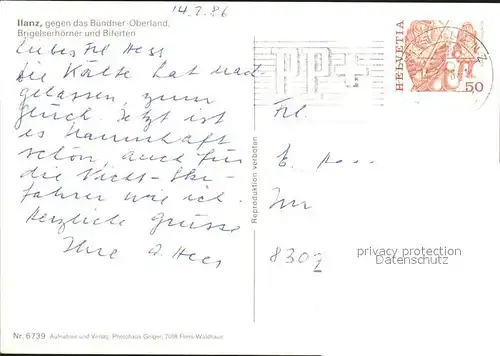 14.2.86
Ilanz, gegen das Bündner-Oberland,
Brigelserhörner und Biferten
Liebes Frl Hess
die Kälte hat nach-
gelassen, zum
Glück. Jetzt ist
es
schön, auch für
die Nicht-Ski-
fahrer wie ich.
Herzliche Grüsse
Ihre A. Hess
Frl.
E.
8301
HELVETIA
50
PP
Reproduktion verboten
privacy protection
DatenSchutz
Nr. 6739 Aufnahme und Verlag Photohaus Geiger, 7018 Flims-Waldhaus